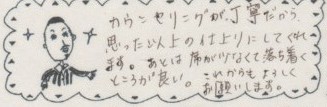 カウンセリングが丁寧だから
思った以上の仕上りにしてくれ
ます。あとは席が少なくて落ち着く
ところが良い。これからもよろしく
お願いします。